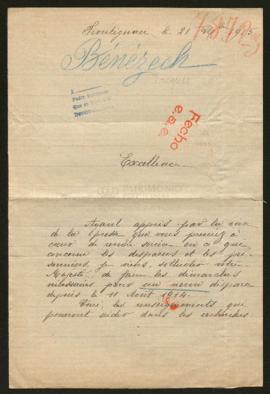 Frontignan le 21
Bénézech
Fecho
e.a.e.
Excellence
Ayant appris par la voix
de la presse que vous prenez à
cœur de rendre service en ce que
concerne les disparus et les pri-
sonniers, je viens solliciter votre
Majesté de faire les démarches
nécessaires pour un neveu disparu
depuis le 11 Août 1914.
Voici les renseignements que
pourront aider dans les recherches